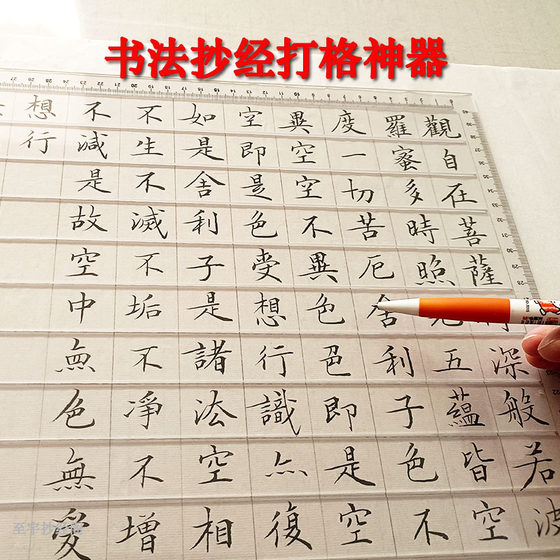 书法抄经打格神器
觀自在菩薩行深般若波
羅蜜多時照見五蘊皆空
度一切苦厄舍利子色不
異空空不異色色即是空
空即是色受想行識亦復
如是舍利子是諸法空相
不生不滅不垢不淨不增
不減是故空中無色無愛
想行